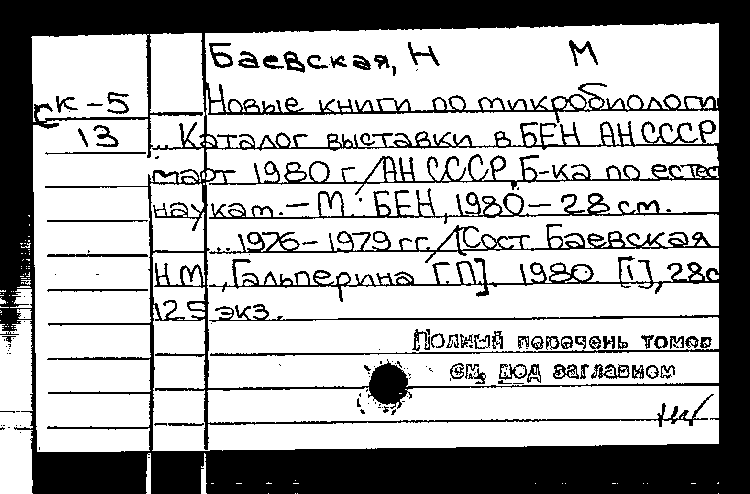 Баевская, Н М
ск-5
Новые книги по микробиологи
13
... Каталог выставки в БЕН АН СССР
март 1980 г./АН СССР, Б-ка по естес
наукам. — М.: БЕН, 1980 — 28 см.
... 1976 – 1979 гг. / [Сост. Баевская
Н.М., Гальперина Г.П.]. 1980. [1], 28 с
125 экз.
Полный перечень томов
см. под заглавием